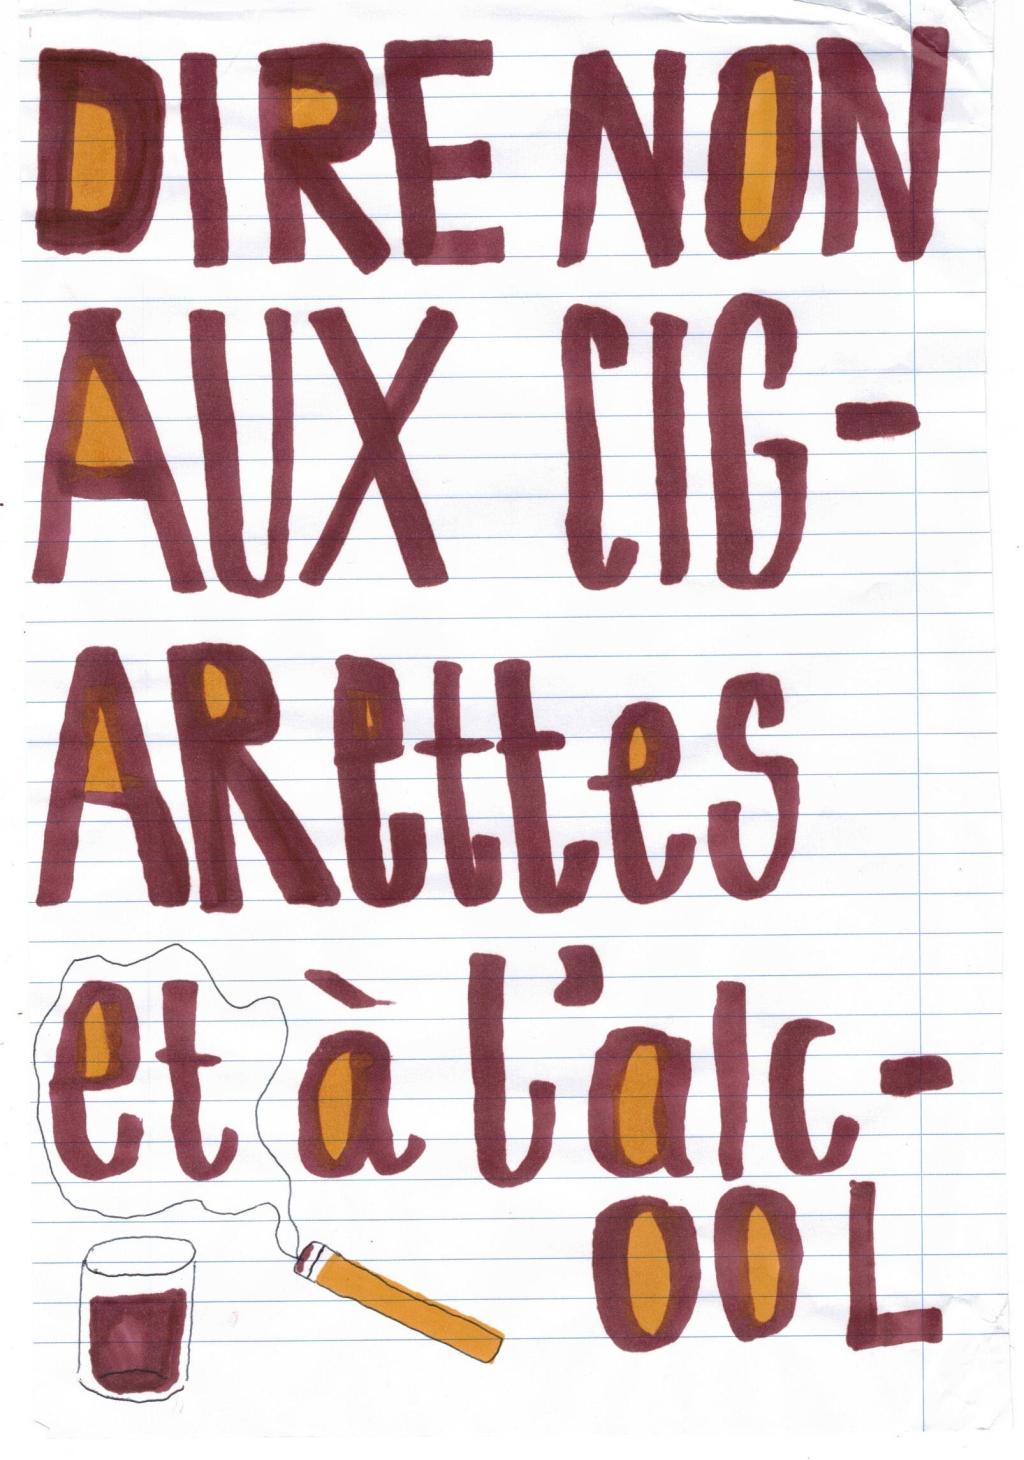 DIRE NON
AUX CIG-
ARettes
et à l'alc-
OOL